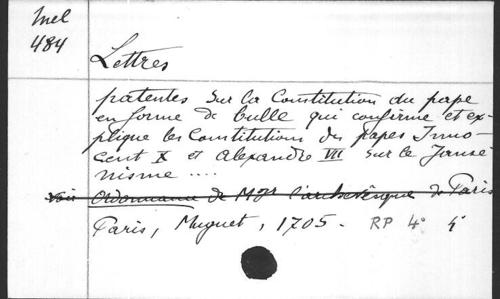 Mel
484
Lettres
patentes sur la Constitution du pape
en forme de bulle qui confirme et ex-
plique les Constitutions des papes Inno-
cent X et Alexandre VII sur le Jansé-
nisme ....
voir Ordonnance de Mgr l'archevêque de Paris
Paris, Muguet, 1705. RP 4°